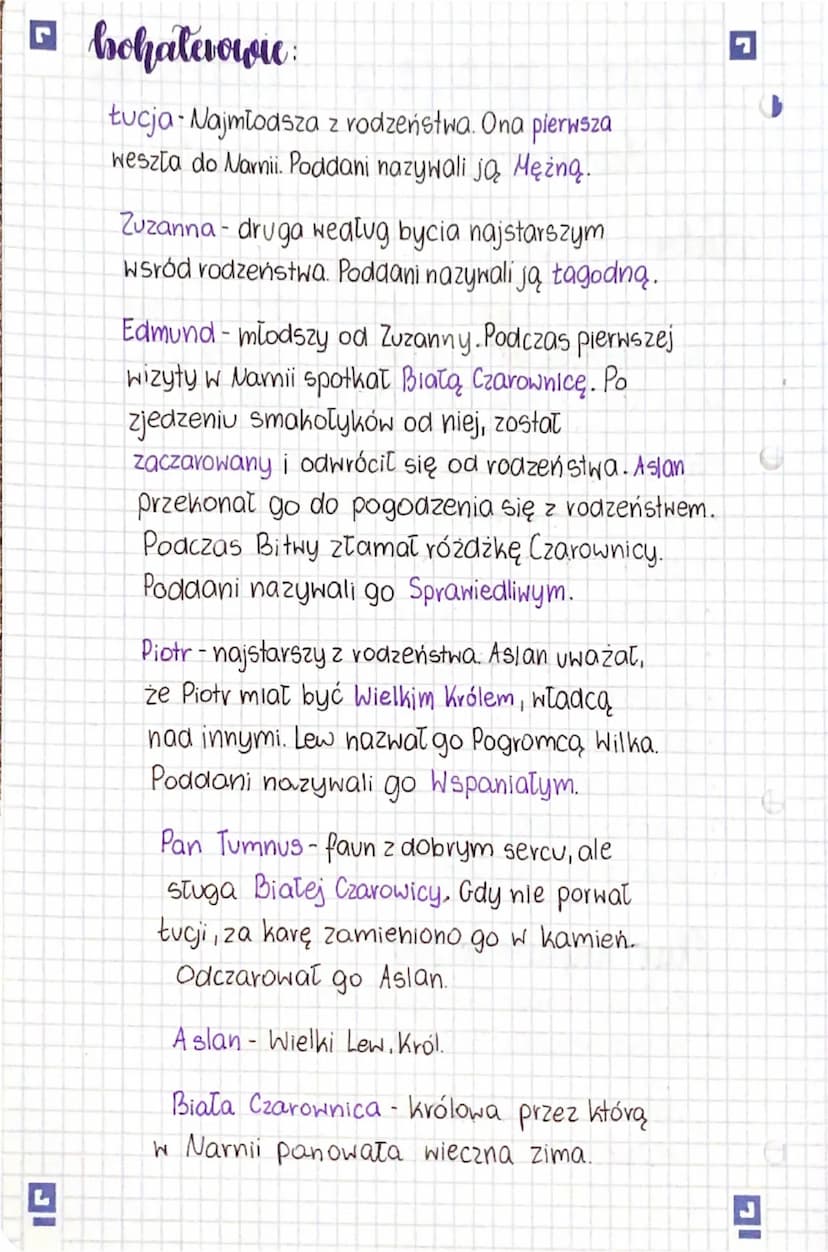 bohaterowie:
Łucja - Najmłodsza z rodzeństwa. Ona pierwsza
weszła do Narnii. Poddani nazywali ją Mężną.
Zuzanna - druga według bycia najstarszym
wsród rodzeństwa. Poddani nazywali ją Łagodną.
Edmund - młodszy od Zuzanny. Podczas pierwszej
wizyty w Narnii spotkał Białą Czarownicę. Po
zjedzeniu smakołyków od niej, został
zaczarowany i odwrócił się od rodzeństwa. Aslan
przekonał go do pogodzenia się z rodzeństwem.
Podczas Bitwy złamał różdżkę Czarownicy.
Poddani nazywali go Sprawiedliwym.
Piotr - najstarszy z rodzeństwa. Aslan uważał,
że Piotr miał być Wielkim Królem, władcą
nad innymi. Lew nazwał go Pogromcą Wilka.
Poddani nazywali go Wspaniałym.
Pan Tumnus - faun z dobrym sercu, ale
sługa Białej Czarowicy. Gdy nie porwał
Łucji, za karę zamieniono go w kamień.
Odczarował go Aslan.
Aslan - Wielki Lew, Król.
Biała Czarownica - królowa przez którą
w Narnii panowała wieczna zima.